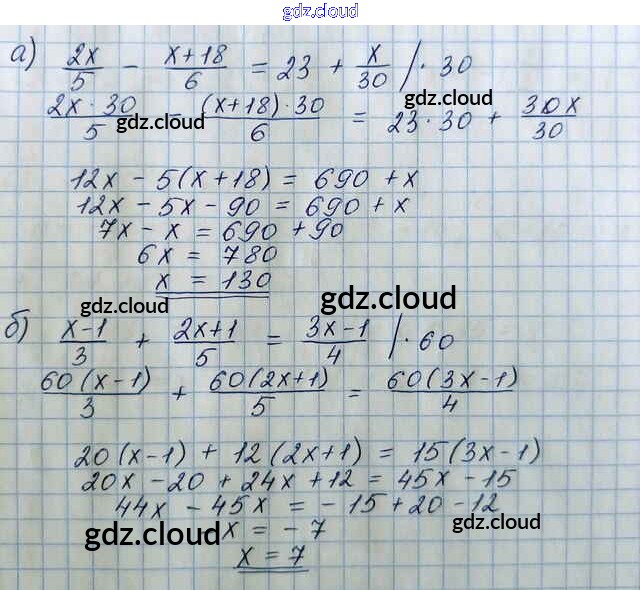 gdz.cloud
а) 2x/5 - (x+18)/6 = 23 + x/30 /· 30
2x·30/5 - (x+18)·30/6 = 23·30 + 30x/30
gdz.cloud gdz.cloud gdz.cloud
12x - 5(x+18) = 690 + x
12x - 5x - 90 = 690 + x
7x - x = 690 + 90
6x = 780
x = 130
gdz.cloud gdz.cloud
б) (x-1)/3 + (2x+1)/5 = (3x-1)/4 /· 60
60(x-1)/3 + 60(2x+1)/5 = 60(3x-1)/4
20(x-1) + 12(2x+1) = 15(3x-1)
20x - 20 + 24x + 12 = 45x - 15
44x - 45x = -15 + 20 - 12
x = -7
gdz.cloud gdz.cloud
x = 7